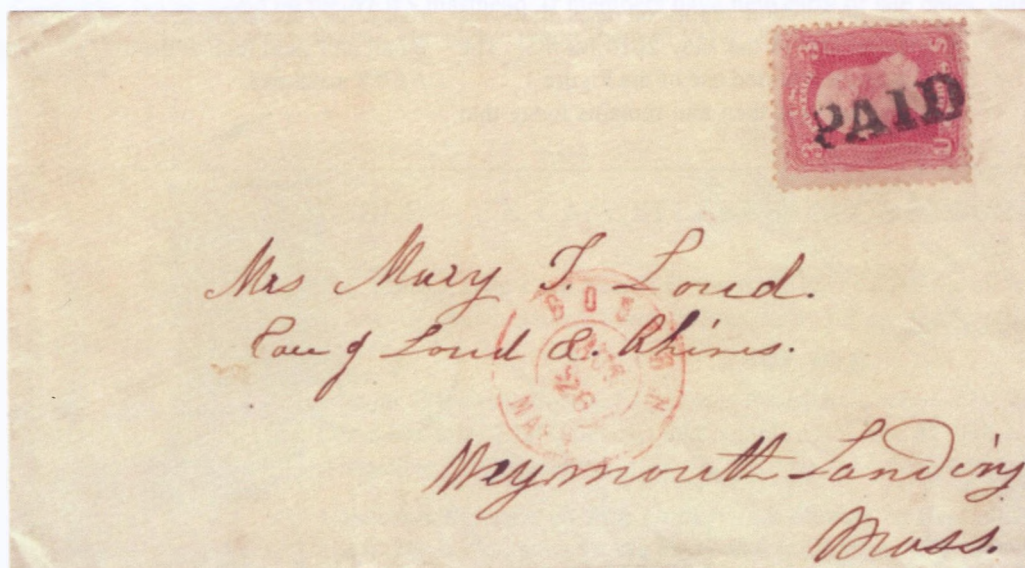 PAID
3 U S
3 U
Mrs Mary T. Loud.
Care of Loud &. Rhines.
BOS N
26
MAS
Weymouth Landing
Mass.